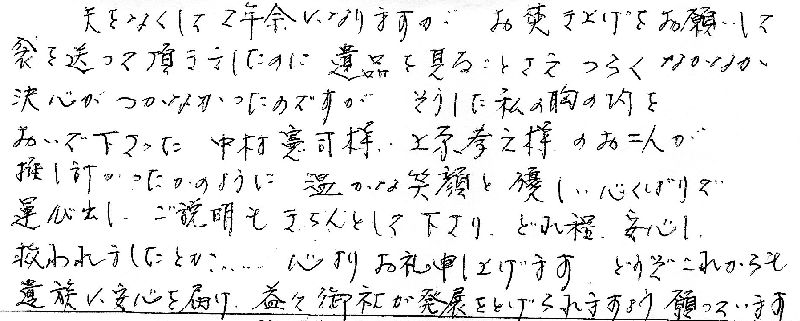 夫をなくして2年余になりますが お焚き上げをお願いして
袋を送って頂きましたのに 遺品を見ることさえ つらく なかなか
決心が つかなかったのですが そうした私の胸の内を
おいで下さった 中村憲司様、上原孝之様 のお二人が
推し計かったかのように 温かな笑顔と優しい心くばりで
運び出し、ご説明も きちんとして下さり、どれ程 安心し、
救われましたとか...... 心より お礼申し上げます どうぞこれからも
遺族に安心を届け、益々御社が発展をとげられますよう 願っています